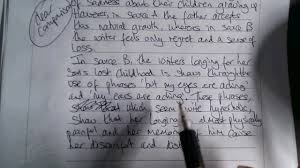 new comparison
of sadness about their children growing up
However, in source A the father accepts
this natural growth, whereas in source B
the writer feels only regret and a sense of
loss.
In source B, the writers longing for her
sons lost childhood is shown through the
use of phrases but my eyes are aching
and my ears are aching. These phrases,
which seem quite hyperbolic,
show that her longing is almost physically
painful and her memories of him cause
her discomfort and